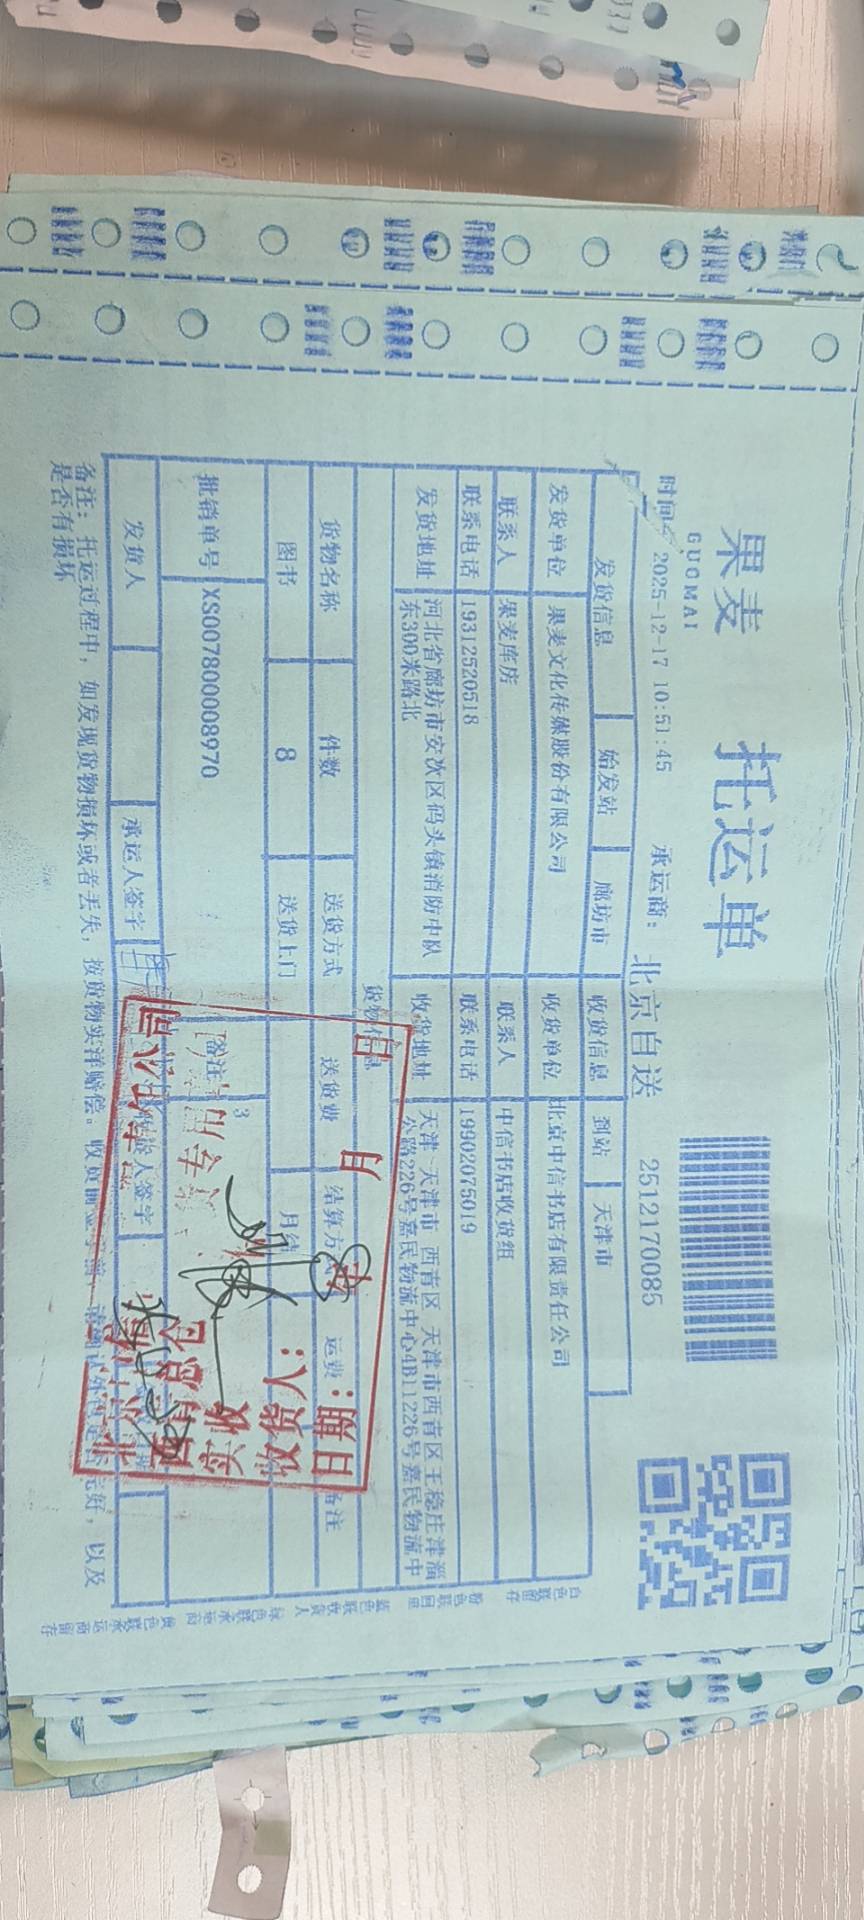 果麦 托运单
GUOMAI
时间: 2025-12-17 10:51:45 承运商: 北京自送 2512170085
发货信息 始发站 廊坊市 收货信息 到站 天津市
发货单位 果麦文化传媒股份有限公司 收货单位 北京中信书店有限责任公司
联系人 果麦库房 联系人 中信书店收货组
联系电话 19312520518 联系电话 19902075019
发货地址 河北省廊坊市安次区码头镇消防中队 收货地址 天津 天津市 西青区 天津市西青区王稳庄津淄
东300米路北 公路226号嘉民物流中心4B11226号嘉民物流中
货物信息
货物名称 件数 送货方式 送货费 结算方式 运费 备注
图书 8 送货上门 月结
批销单号 XS007800008970 备注 3
发货人 承运人签字 收货人签字
备注: 托运过程中, 如发现货物损坏或者丢失, 按货物实洋赔偿。收货前 请确认外包是否完好, 以及
是否有损坏
实收
收货人:
日期: 年 月 日